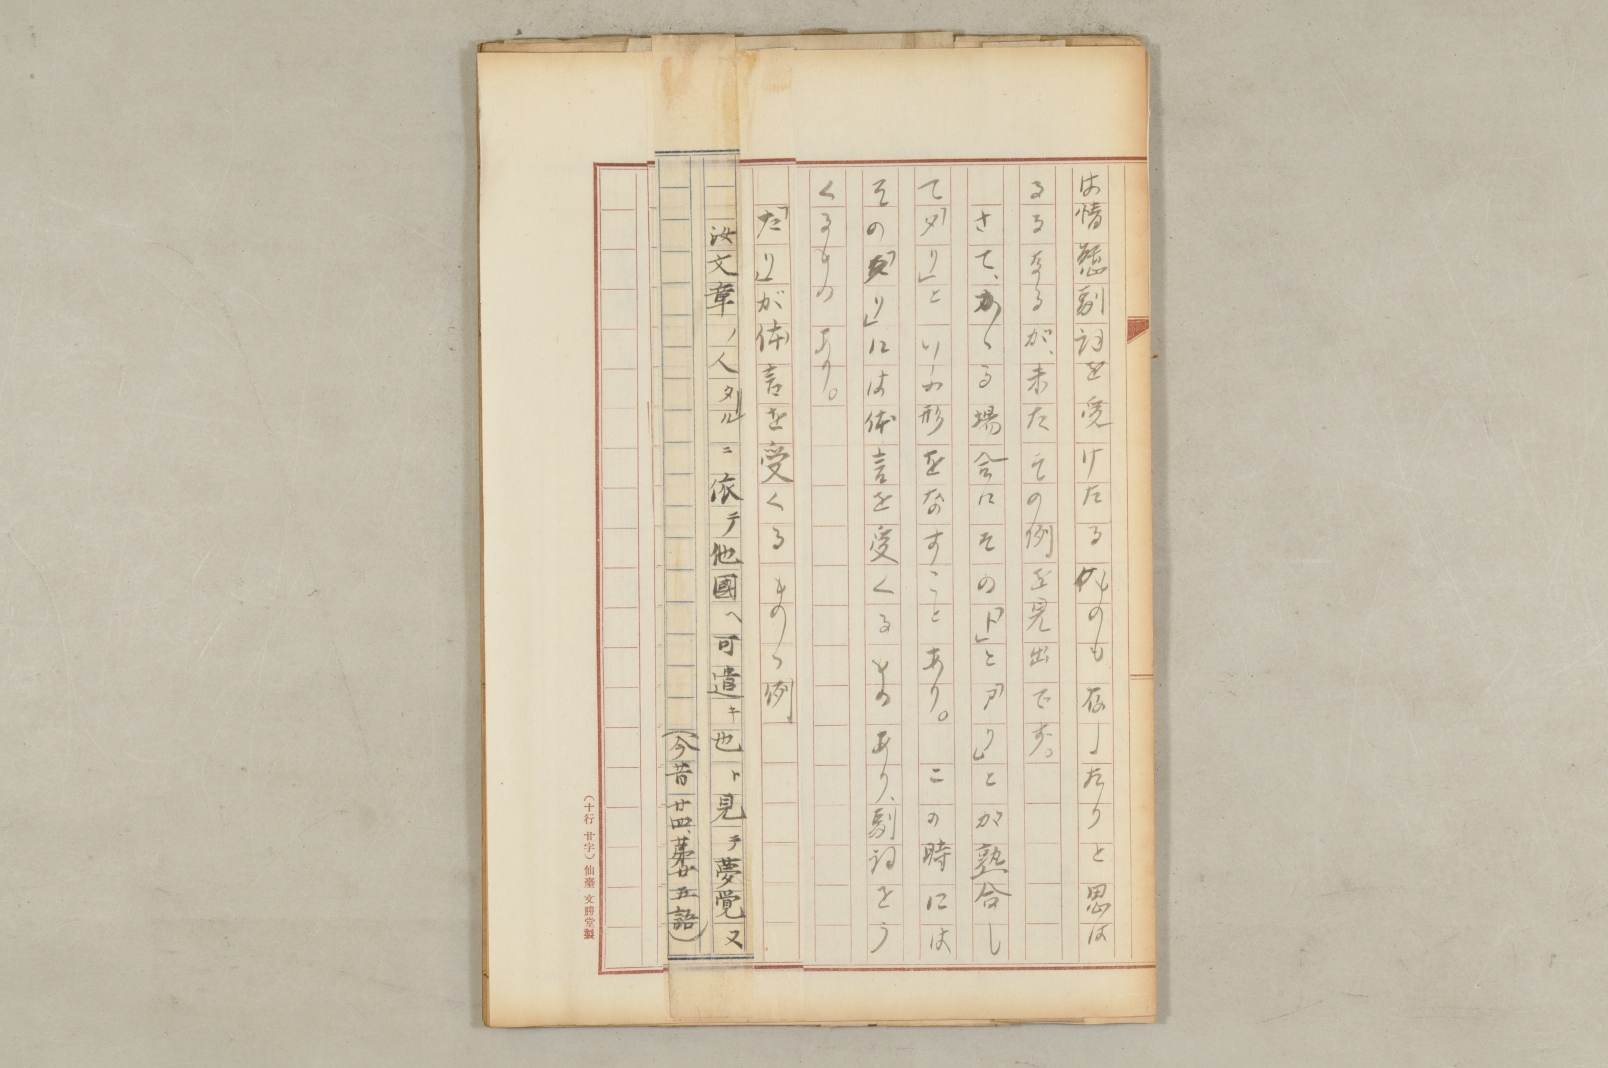 は情態副詞を受けたるものも存したりと思は
るるなるが、未だその例を見出でず。
さて、かゝる場合にその「ト」と「アリ」とが熟合し
て「タリ」といふ形をなすことあり。この時には
その「タリ」には体言を受くるものあり、副詞をう
くるものあり。
「たり」が体言を受くるものゝ例
汝文章ノ人タルニ依テ他國ヘ可遣キ也ト見テ夢覚又
(今昔廿四、第廿五語)
(十行廿字)仙臺文勝堂製